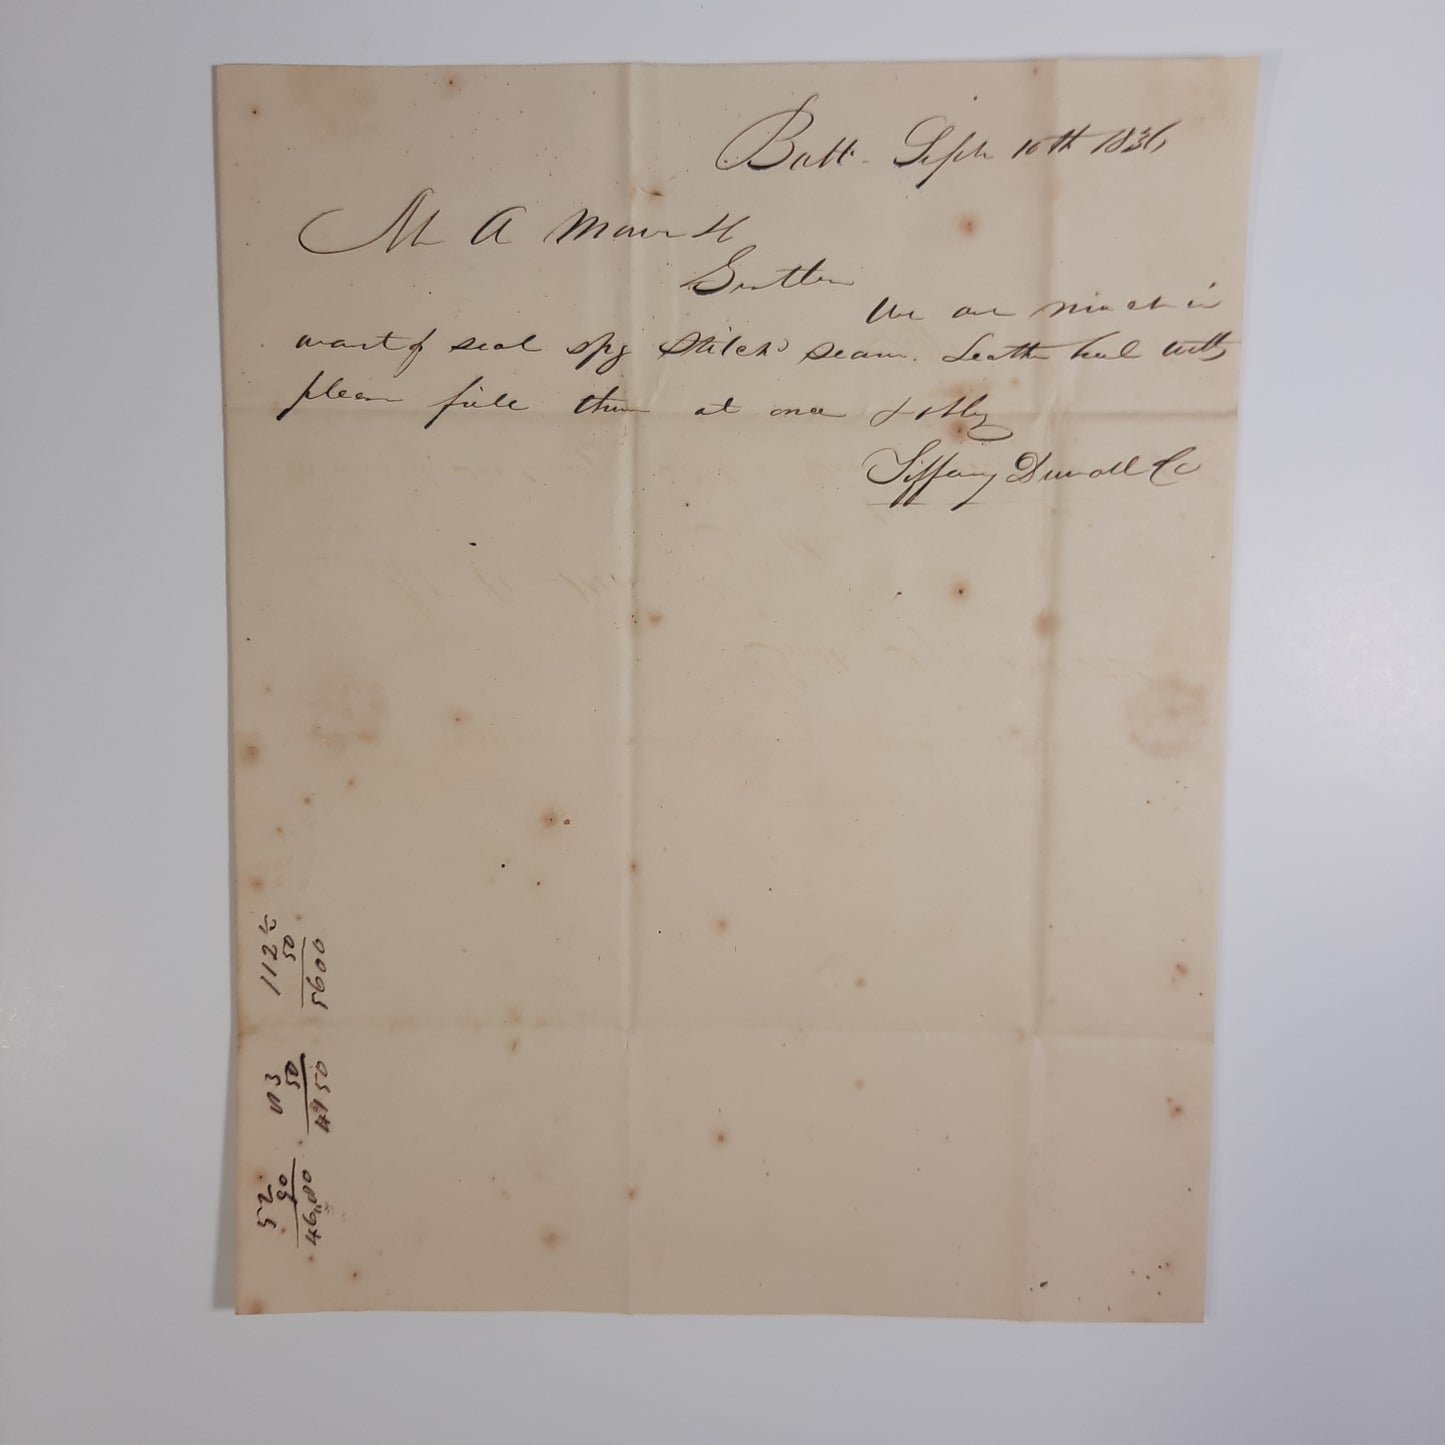 Balt. Sept 10th 1836
A
Gentlen
We are much in
want of seal spg stitchd seam. Leather heel
please fill them at once & obly
Tiffany Duvall Co
112 1/2
50
5600
93
50
4650
52
90
4680